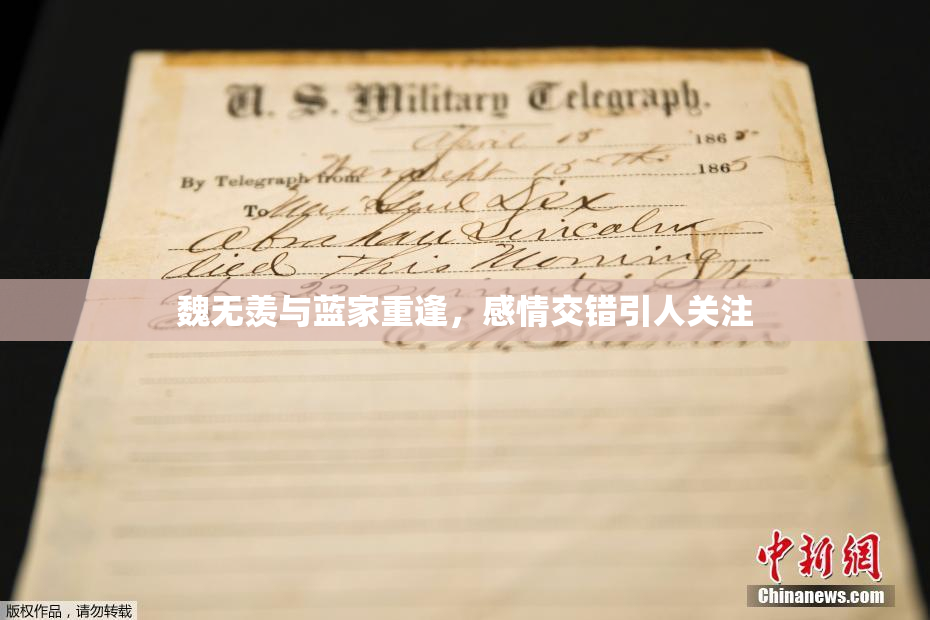 U. S. Military Telegraph.
April 15 1865
By Telegraph from War Dept 15th 1865
To Maj Genl Dix
Abraham Lincoln
died This Morning
at 22 minutes after
魏无羡与蓝家重逢，感情交错引人关注
E. M. Stanton
中新网
Chinanews.com
版权作品，请勿转载